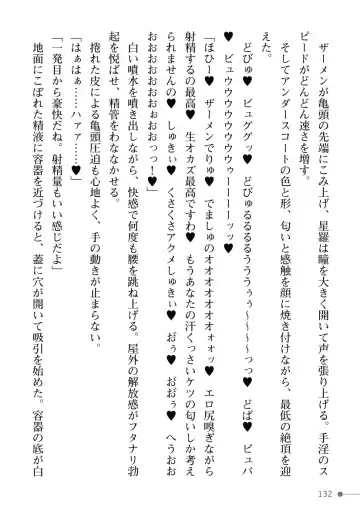 ザーメンが亀頭の先端にこみ上げ、星羅は瞳を大きく開いて声を張り上げる。手淫のス
ピードがどんどん速さを増す。
そしてアンダースコートの色と形、匂いと感触を顔に焼き付けながら、最低の絶頂を迎
えた。
どびゅ♥　ビュググッ♥　どびゅるるるるうううぅぅ～～～～っっ♥　どば♥　ビュバ
♥　ビュウウウウウウウウゥーーーーッッ♥
「ほひー♥　ザーメンでりゅ♥　でましゅのオオオオオオォォ♥　エロ尻嗅ぎながら
射精するの最高♥　生オカズ最高ですわ♥　もうあなたの汗くっさいケツの匂いしか考え
られませんの♥　しゅきぃ♥　くさくさアクメしゅきぃ♥　おぉ♥　おおぉ♥　へうおお
おおおおおおおぉおおっっ！♥」
白い噴水を噴き出しながら、快感で何度も腰を跳ね上げる。屋外の解放感がフタナリ勃
起を悦ばせ、精管をわななかせる。
捲れた皮による亀頭圧迫も心地よく、手の動きが止まらない。
「はぁはぁ……♥　ハァァ……♥」
「一発目から豪快だね。射精量もいい感じだよ」
地面にこぼれた精液に容器を近づけると、蓋に穴が開いて吸引を始めた。容器の底が白
132